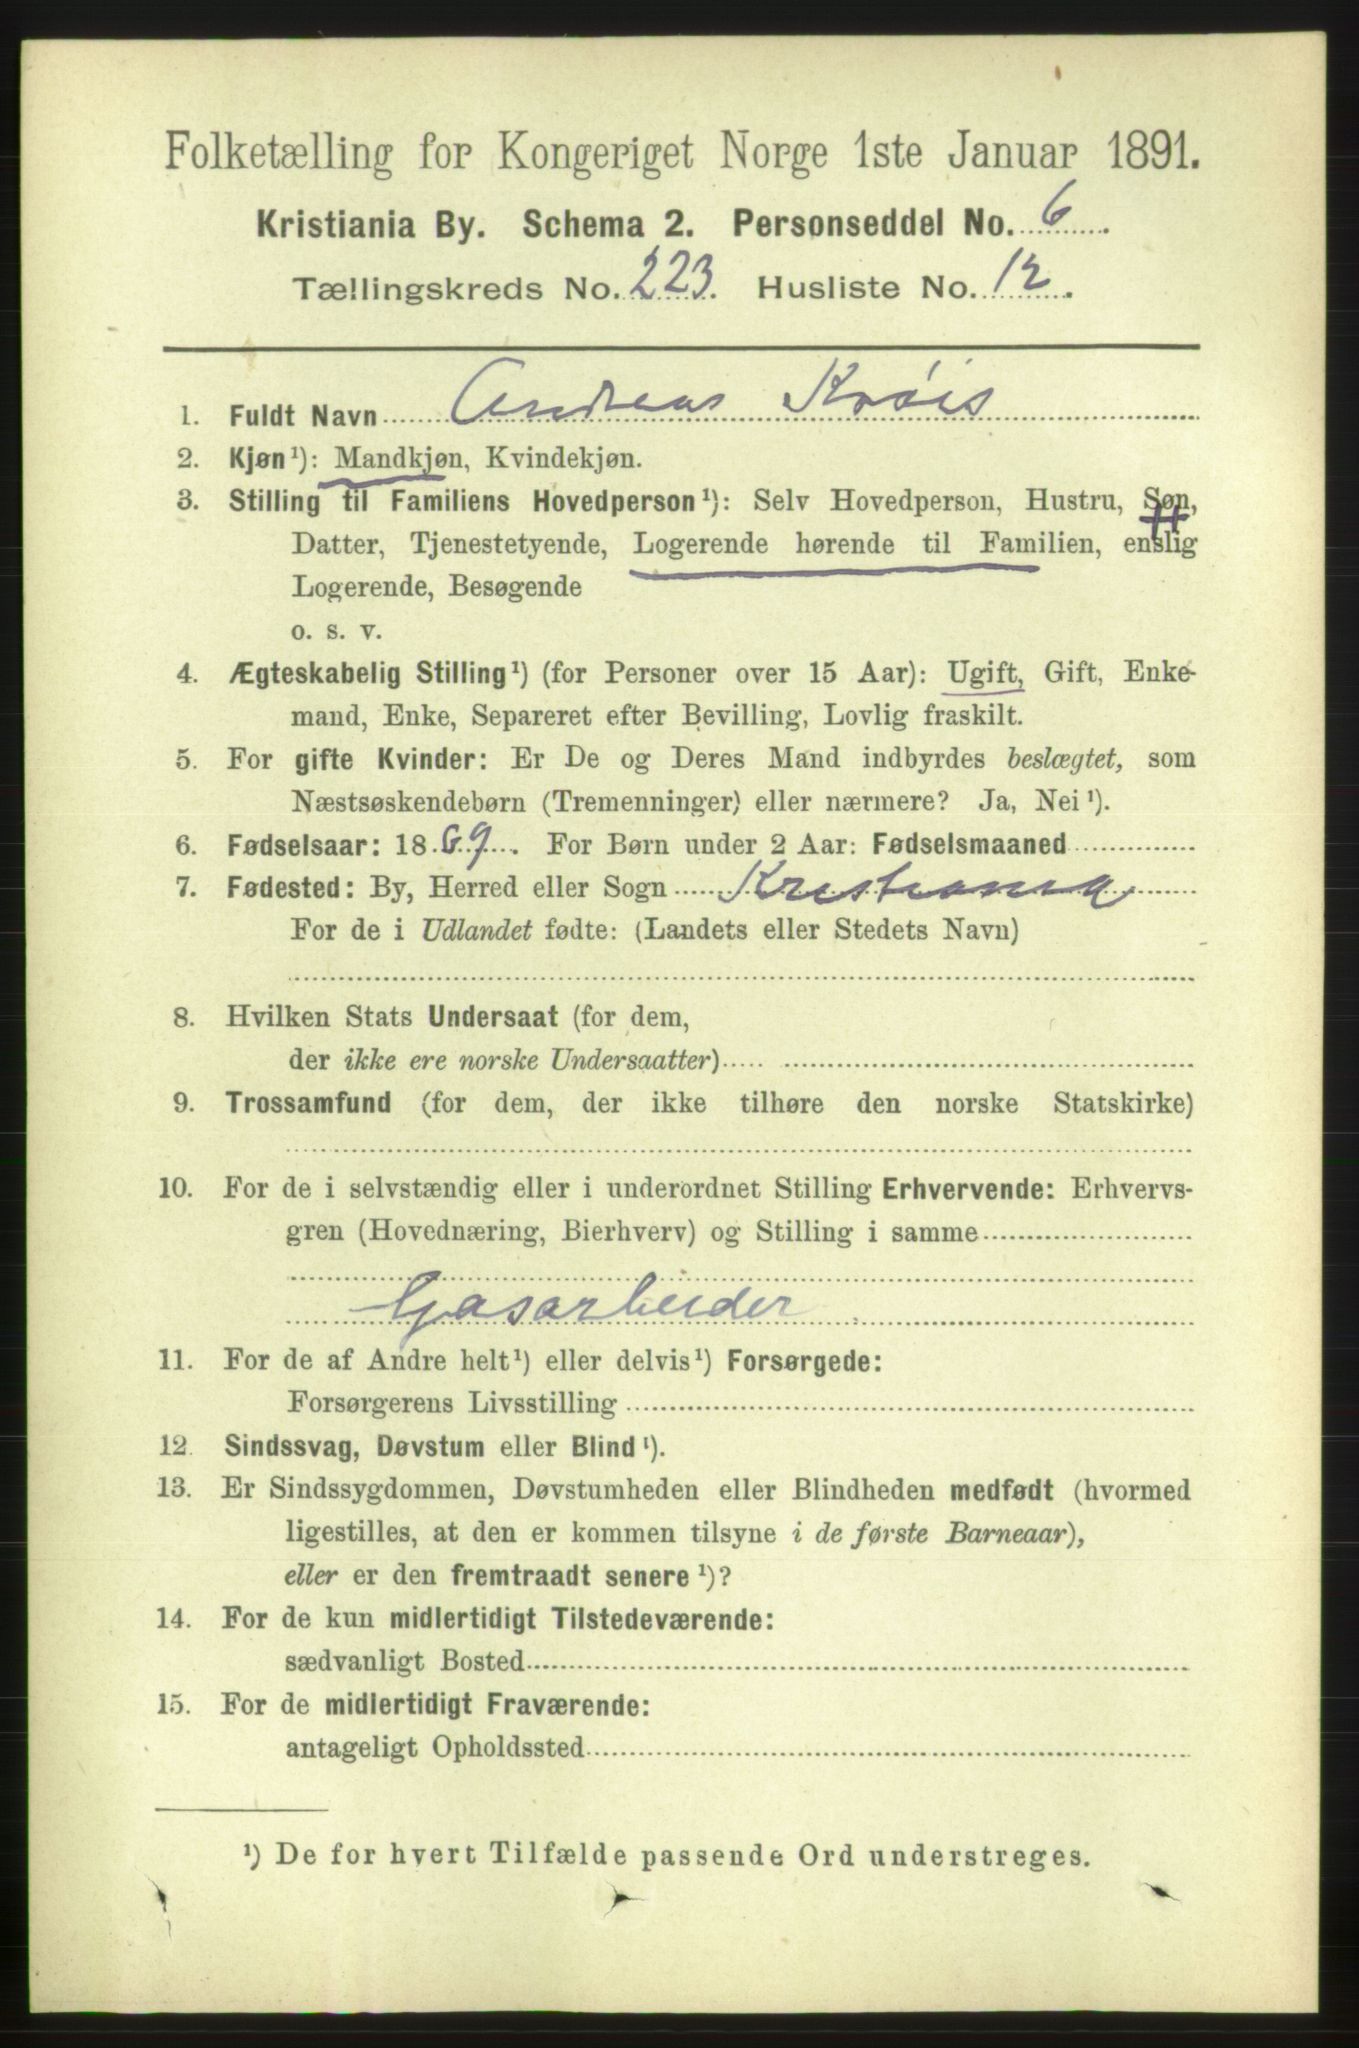 Folketælling for Kongeriget Norge 1ste Januar 1891.
Kristiania By. Schema 2. Personseddel No. 6.
Tællingskreds No. 223. Husliste No. 12.
1. Fuldt Navn Andreas Krøis
2. Kjøn¹): Mandkjøn, Kvindekjøn.
3. Stilling til Familiens Hovedperson¹): Selv Hovedperson, Hustru, Søn,
Datter, Tjenestetyende, Logerende hørende til Familien, enslig
Logerende, Besøgende
o. s. v.
4. Ægteskabelig Stilling¹) (for Personer over 15 Aar): Ugift, Gift, Enke-
mand, Enke, Separeret efter Bevilling, Lovlig fraskilt.
5. For gifte Kvinder: Er De og Deres Mand indbyrdes beslægtet, som
Næstsøskendebørn (Tremenninger) eller nærmere? Ja, Nei¹).
6. Fødselsaar: 1869. For Børn under 2 Aar: Fødselsmaaned
7. Fødested: By, Herred eller Sogn Kristiania
For de i Udlandet fødte: (Landets eller Stedets Navn)
8. Hvilken Stats Undersaat (for dem,
der ikke ere norske Undersaatter)
9. Trossamfund (for dem, der ikke tilhøre den norske Statskirke)
10. For de i selvstændig eller i underordnet Stilling Erhvervende: Erhvervs-
gren (Hovednæring, Bierhverv) og Stilling i samme
Gasarbeider
11. For de af Andre helt¹) eller delvis¹) Forsørgede:
Forsørgerens Livsstilling
12. Sindssvag, Døvstum eller Blind¹).
13. Er Sindssygdommen, Døvstumheden eller Blindheden medfødt (hvormed
ligestilles, at den er kommen tilsyne i de første Barneaar),
eller er den fremtraadt senere¹)?
14. For de kun midlertidigt Tilstedeværende:
sædvanligt Bosted
15. For de midlertidigt Fraværende:
antageligt Opholdssted
¹) De for hvert Tilfælde passende Ord understreges.